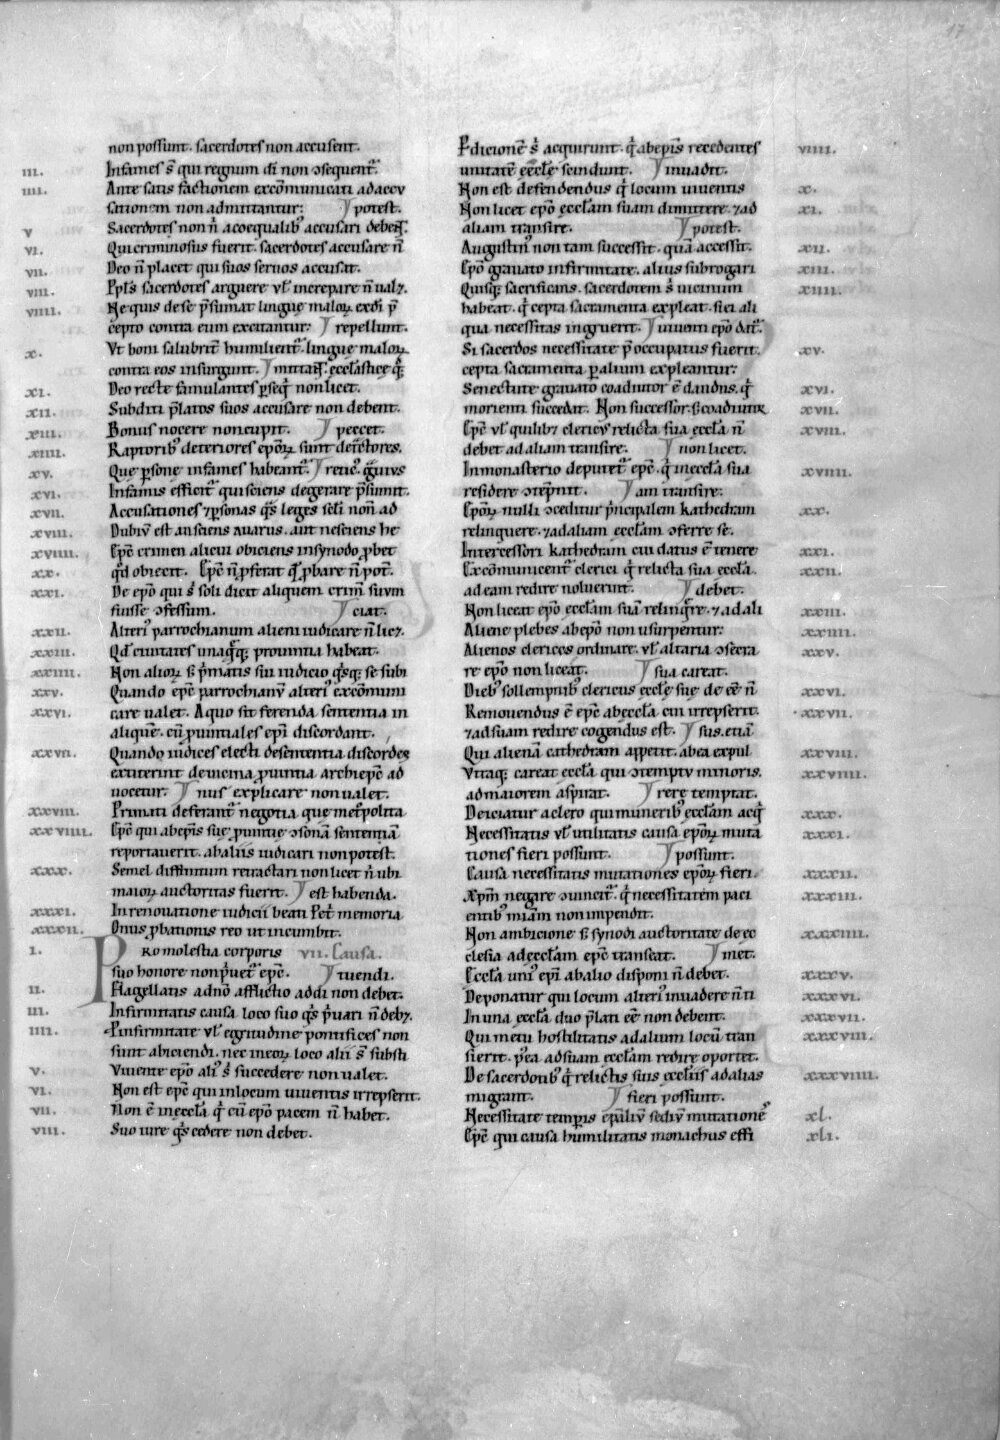 17
non possunt. sacerdotes non accusent.
iii. Infames s̄ qui regnum dī non ꝯsequentᷣ.
iiii. Ante satis factionem excōmunicati ad accu
sationem non admittantur: potest.
v Sacerdotes non n̄ acoequalibꝰ accusari debent.
vi. Qui criminosus fuerit. sacerdotes accusare n̄
vii. Deo n̄ placet qui suos seruos accusat.
viii. Pplꝰs sacerdotes arguere vl̓ increpare n̄ ual&.
viiii. Ne quis de se p̄sumat lingue maloꝝ exdī p̄
cepto contra eum excitantur: repellunt.
x. Vt boni salubritˀ humilientᷣ. lingue maloꝝ
contra eos insurgunt. ecclastice
xi. Deo recte famulantes ꝑseqͥ non licet.
xii. Subditi p̄latos suos accusare non debent.
xiii. Bonus nocere non cupit. peccet.
xiiii. Raptoribꝰ deteriores ep̄oꝝ sunt detͣctores.
xv. Que ꝑsone infames habeantᷣ.
xvi. Infamis efficitᷣ qui sciens degerare p̄sumit.
xvii. Accusationes ⁊ ꝑsonas qͣs leges scl̄i non ad
xviii. Dubiū est an sciens auarus. aut nesciens he
xviiii. Ep̄c crimen alicui obiciens in synodo ꝓbet
xx. qd̄ obiecit. Ep̄c n̄ ꝓferat ꝓbare n̄ pot̄.
xxi. De ep̄o qui sͥ soli dicit aliquem crim̄ suum
fuisse ꝯfessum. ciat.
xxii. Alteriꝰ parrochianum alieni iudicare n̄ lic&.
xxiii. Qd̄ ciuitates unaqͣqꝫ ꝓuintia habeat.
xxiiii. Non alioꝝ sꝫ pͥmatis sui iudicio qͥsqꝫ se subi
xxv. Quando ep̄c parrochianū alteriꝰ excōmuni
xxvi. care ualet. A quo sit ferenda sententia in
aliquē. cū ꝓuintiales ep̄i discordant.
xxvii. Quando iudices electi de sententia discordes
extiterint de uicina ꝓuintia archiep̄c ad
uocetur: nus explicare non ualet.
xxviii. Primati deferantᷣ negotia que metͦpolita
xxviiii. Ep̄c qui ab ep̄is sue ꝓuintie ꝯsonā sententiā
reportauerit. ab aliis iudicari non potest.
xxx. Semel diffinitum retractari non licet n̄ ubi
maioꝝ auctoritas fuerit. est habenda.
xxxi. In renouatione iudicii beati Petͥ memoria
xxxii. Onus ꝓbationis reo ut incumbit.
i. Pro molestia corporis vii. Causa.
suo honore non pͥuetᷣ ep̄c. tuendi.
ii. Flagellatis ad nō afflictio addi non debet.
iii. Infirmitatis causa loco suo qͥs pͥuari n̄ deb&.
iiii. P infirmitate vl̓ egritudine pontifices non
sunt abiciendi. nec in eoꝝ loco alii s̄ substi
v. Viuente ep̄o aliꝰ sͥ succedere non ualet.
vi. Non est ep̄c qui in locum uiuentis irrepserit.
vii. Non ē in eccl̄a qͥ cū ep̄o pacem n̄ habet.
viii. Suo iure qͥs cedere non debet.
Pdicionē sͥ acquirunt. qͥ ab ep̄is recedentes viiii.
unitatē eccl̄e scindunt. inuadit.
Non est defendendus qͥ locum uiuentis x.
Non licet ep̄o eccl̄am suam dimittere. ⁊ ad xi.
aliam transire. potest.
Augustinꝰ non tam successit. quā accessit. xii.
Ep̄o grauato infirmitate. alius subrogari xiii.
Quisqꝫ sacrificans. sacerdotem sͥ uicinum xiiii.
habeat. qͥ cepta sacramenta expleat. si ei ali
qua necessitas ingruerit. uiuem ep̄o datᷣ.
Si sacerdos necessitate p̄occupatus fuerit. xv.
cepta sacramenta ꝑ alium expleantur:
Senectute grauato coadiutor ē dandus. qͥ xvi.
morienti succedit. Non successor. sꝫ coadiutor xvii.
Ep̄c vl̓ quilibꝫ clericus relicta sua eccl̄a n̄ xviii.
debet ad aliam transire. non licet.
In monasterio deputetᷣ ep̄c. qͥ in eccl̄a sua xviiii.
residere ꝯtēpnit. am transire.
Ep̄oꝝ nulli ꝯceditur pͥncipalem kathedram xx.
relinquere. ⁊ ad aliam eccl̄am ꝯferre se.
Intercessori kathedram cui datus ē tenere xxi.
Excōmunicentᷣ clerici qͥ relicta sua eccl̄a. xxii.
ad eam redire noluerint. debet.
Non liceat ep̄o eccl̄am suā relinqͣre. ⁊ ad ali xxiii.
Aliene plebes ab ep̄o non usurpentur: xxiiii.
Alienos clericos ordinare. vl̓ altaria ꝯsecra xxv.
re ep̄o non liceat. sua careat.
Diebꝰ sollempnibꝰ clericus eccl̄e sue de eē n̄ xxvi.
Remouendus ē ep̄c ab eccl̄a cui irrepserit. xxvii.
⁊ ad suam redire cogendus est. sus. etiā
Qui alienā cathedram appetit. ab ea expul xxviii.
Vtraqꝫ careat eccl̄a qui ꝯtemptu minoris. xxviiii.
ad maiorem aspirat. rere temptat.
Deiciatur a clero qui muneribꝰ eccl̄am acqͥ xxx.
Necessitatis vl̓ utilitatis causa ep̄oꝝ muta xxxi.
tiones fieri possunt. possunt.
Causa necessitatis mutationes ep̄oꝝ fieri. xxxii.
Xp̄m negare ꝯuincitᷣ. qͥ necessitatem paci xxxiii.
entibꝰ mīam non impendit.
Non ambicione sꝫ synodi auctoritate de ec xxxiiii.
clesia ad eccl̄am ep̄c transeat. met.
Eccl̄a uniꝰ ep̄i ab alio disponi n̄ debet. xxxv.
Deponatur qui locum alteriꝰ inuadere n̄ ti xxxvi.
In una eccl̄a duo p̄lati eē non debent. xxxvii.
Qui metu hostilitatis ad alium locū tran xxxviii.
sierit. p̄ ea ad suam eccl̄am redire oportet.
De sacerdotibꝰ qͥ relictis suis eccl̄iis ad alias xxxviiii.
migrant. fieri possunt.
Necessitate temp̄is ep̄aliū sediū mutationēs xl.
Ep̄c qui causa humilitatis monachus effi xli.